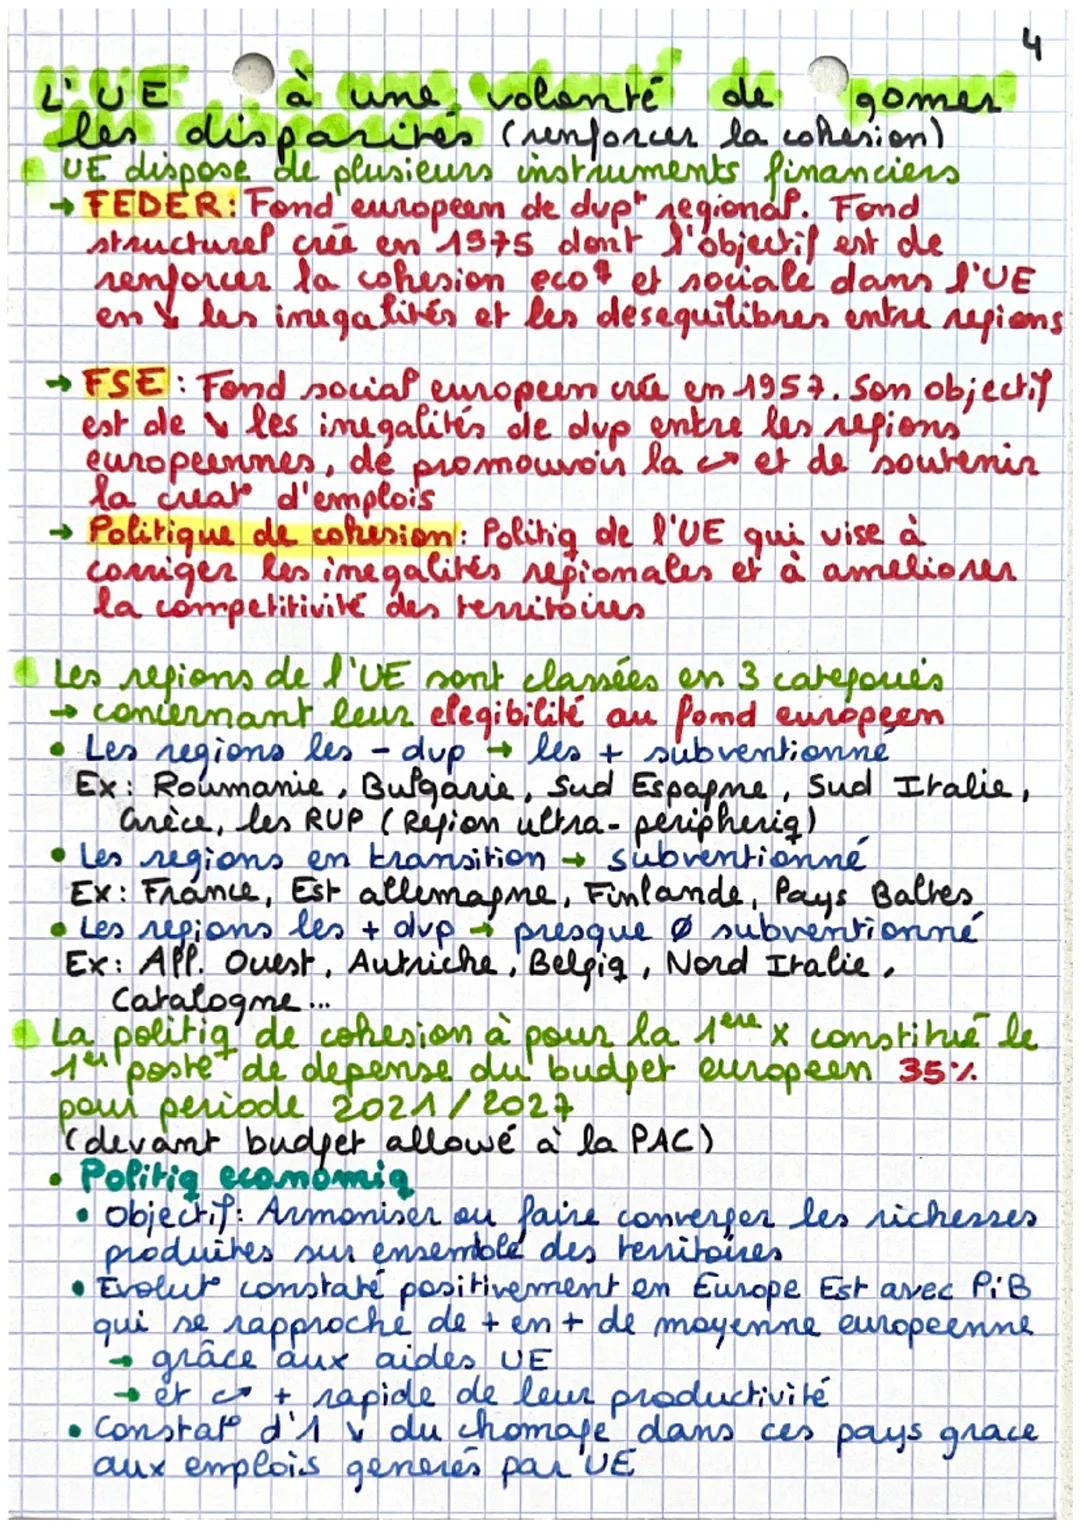 4
L'UE à une volonté de gomer
les disparités (renforcer la cohesion)
UE dispose de plusieurs instruments financiers
→ FEDER: Fond europeen de dvpt regional. Fond
structurel crée en 1975 dont l'objectif est de
renforcer la cohesion eco et sociale dans l'UE
en ↘ les inegalités et les desequilibres entre regions
→ FSE : Fond social europeen crée en 1957. Son objectif
est de ↘ les inegalités de dvp entre les regions
europeennes, de promouvoir la et de soutenir
la creat° d'emplois
→ Politique de cohesion : Politiq de l'UE qui vise à
corriger les inegalités regionales et à ameliorer
la competitivité des territoires
Les regions de l'UE sont classées en 3 categories
→ concernant leur elegibilité au fond europeen
• Les regions les - dvp → les + subventionné
Ex : Roumanie, Bulgarie, Sud Espagne, Sud Italie,
Grèce, les RUP (Region ultra-peripheriq)
• Les regions en transition → subventionné
Ex : France, Est allemagne, Finlande, Pays Baltes
• Les regions les + dvp → presque Ø subventionné
Ex : All. Ouest, Autriche, Belgiq, Nord Italie,
Catalogne...
La politiq de cohesion à pour la 1ere x constitué le
1er poste de depense du budget europeen 35%
pour periode 2021/2027
(devant budget allowé à la PAC)
• Politiq economiq
• Objectif : Armoniser ou faire converger les richesses
produites sur ensemble des territoires
• Evolut° constaté positivement en Europe Est avec PiB
qui se rapproche de + en + de moyenne europeenne
→ grâce aux aides UE
→ et + rapide de leur productivité
• Constat° d'1 ↘ du chomage dans ces pays grace
aux emplois generés par UE